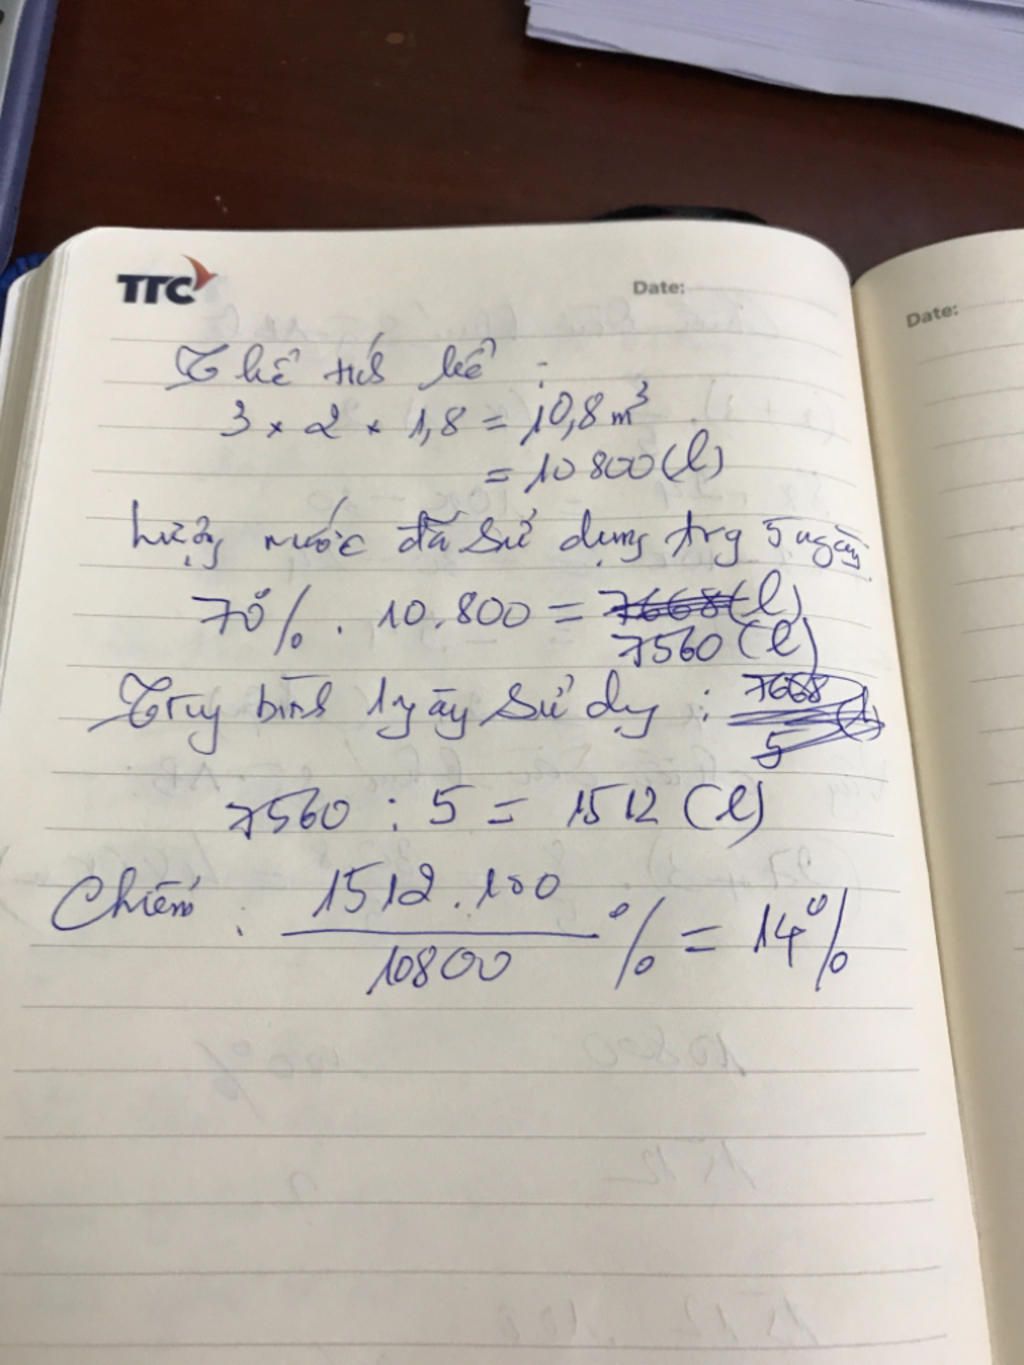 TTC
Date:
Date:
Thể tích bể :
3 × 2 × 1,8 = 10,8 m³
= 10 800 (l)
Lượng nước đã sử dụng trg 5 ngày
70% . 10.800 = 7668 (l)
7560 (l)
Trug bình 1 ngày sử dụg : 7668 (l)
5
7560 : 5 = 1512 (l)
Chiếm : 1512 . 100
10800 % = 14%